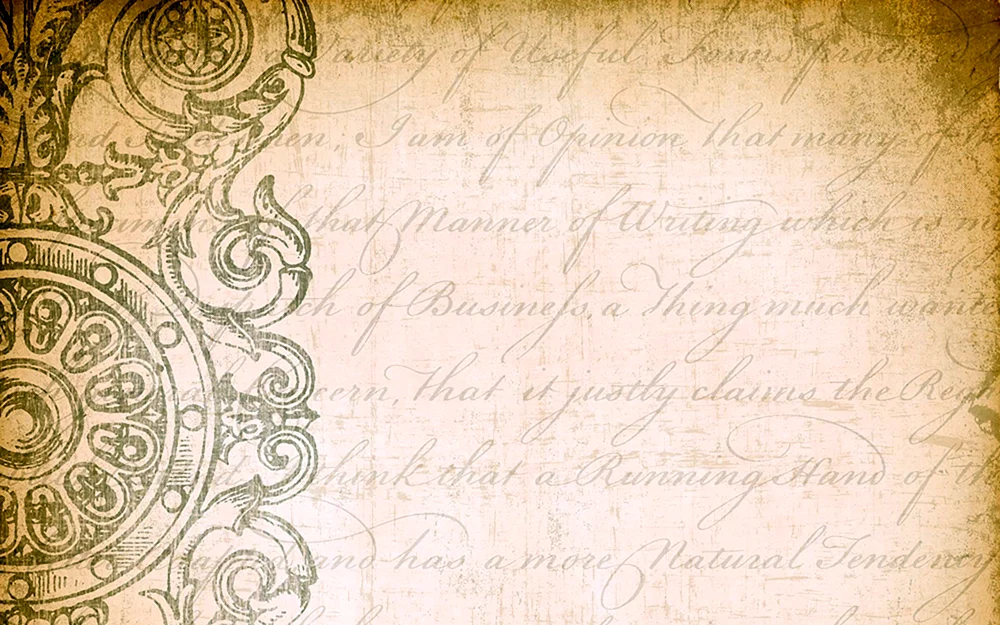 ariety of Useful Forms practic
en, I am of Opinion That many of
that Manner of Writing which is m
ch of Busineſs, a Thing much wante
cern, That it justly claims the Reg
think that a Running Hand of th
and has a more Natural Tendency